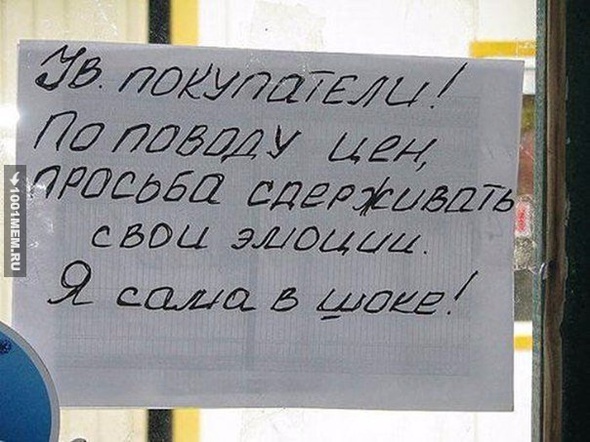 Ув. покупатели!
По поводу цен,
просьба сдерживать
свои эмоции.
Я сама в шоке!
1001MEM.RU